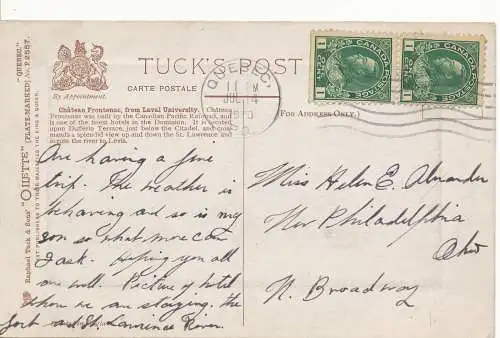 TUCK'S POST
By Appointment.
CARTE POSTALE
Château Frontenac, from Laval University. Château
Frontenac was built by the Canadian Pacific Railroad, and
is one of the finest hotels in the Dominion. It is located
upon Dufferin Terrace, just below the Citadel, and com-
mands a splendid view up and down the St. Lawrence and
across the river to Levis.
(FOR ADDRESS ONLY.)
"QUEBEC."
"OILETTE" [PLATE-MARKED] No. P.2557.
Raphael Tuck & Sons'
ART PUBLISHERS TO THEIR MAJESTIES THE KING & QUEEN.
QUEBEC
11 PM
CANADA POSTAGE
1 ONE CENT 1
CANADA POSTAGE
1 ONE CENT 1
Are having a fine
trip. The weather is
behaving and so is my
son so what more can
I ask. Hoping you all
are well. Picture of hotel
where we are staying, the
fort and St. Lawrence River.
Miss Helen E. Alexander
New Philadelphia
Ohio
N. Broadway